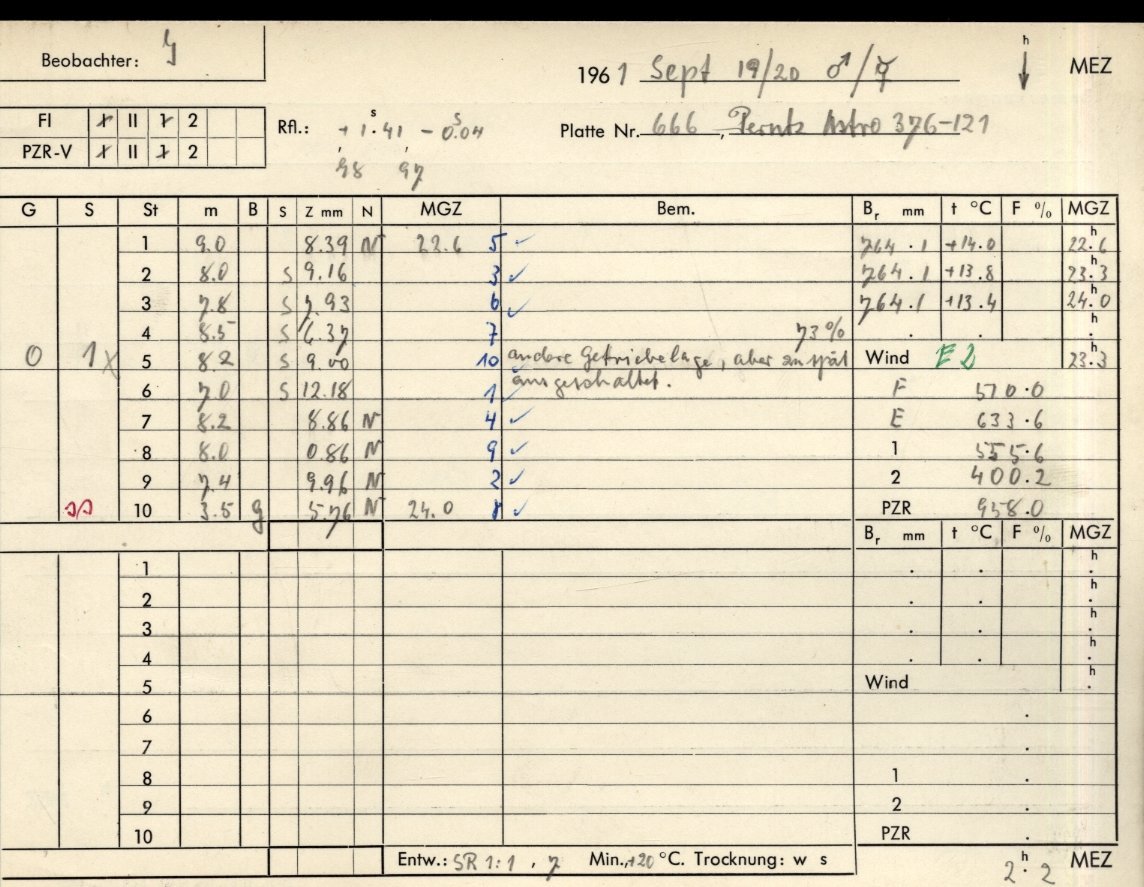 Beobachter:
196 1 Sept 19/20 ♂/☿
h
MEZ
FI II 2
PZR-V II 2
Rfl.: + 1ˢ.41 - 0ˢ.04
48 97
Platte Nr. 666, Perutz Astro 376-121
G S St m B S Z mm N MGZ Bem. Br mm t °C F % MGZ
1 9.0 8.39 N 22.6 5 ✓ 764.1 +14.0 22ʰ.6
2 8.0 S 9.16 3 ✓ 764.1 +13.8 23ʰ.3
3 7.8 S 7.93 6 ✓ 764.1 +13.4 24ʰ.0
4 8.5 S 6.37 7 73% . . h.
0 1 X 5 8.2 S 9.00 10 andere Getriebelage, aber zu spät Wind E2 23.3
6 7.0 S 12.18 1 ausgeschaltet. F 570.0
7 8.2 8.86 N 4 ✓ E 633.6
8 8.0 0.86 N 9 ✓ 1 555.6
9 7.4 9.96 N 2 ✓ 2 400.2
10 3.5 g 5.76 N 24.0 8 ✓ PZR 958.0
Br mm t °C F % MGZ
1 . . h.
2 . . h.
3 . . h.
4 . . h.
5 Wind h.
6 .
7 .
8 1 .
9 2 .
10 PZR .
Entw.: SR 1:1 , 7 Min., +20 °C. Trocknung: w s 2ʰ.2 MEZ